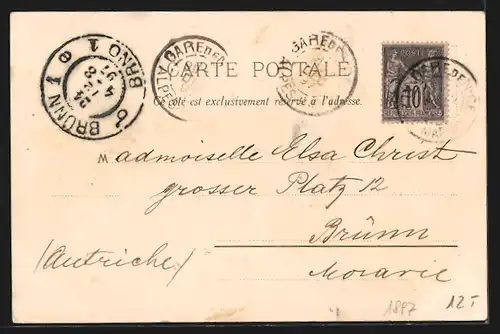 CARTE POSTALE
Ce côté est exclusivement réservé à l'adresse.
BRÜNN 1
BRNO 1
GARE DE
GARE DE
GARE DE
10
Mademoiselle Elsa Christ
grosser Platz 12
Brünn
(Autriche)
Moravie
1897
12.-